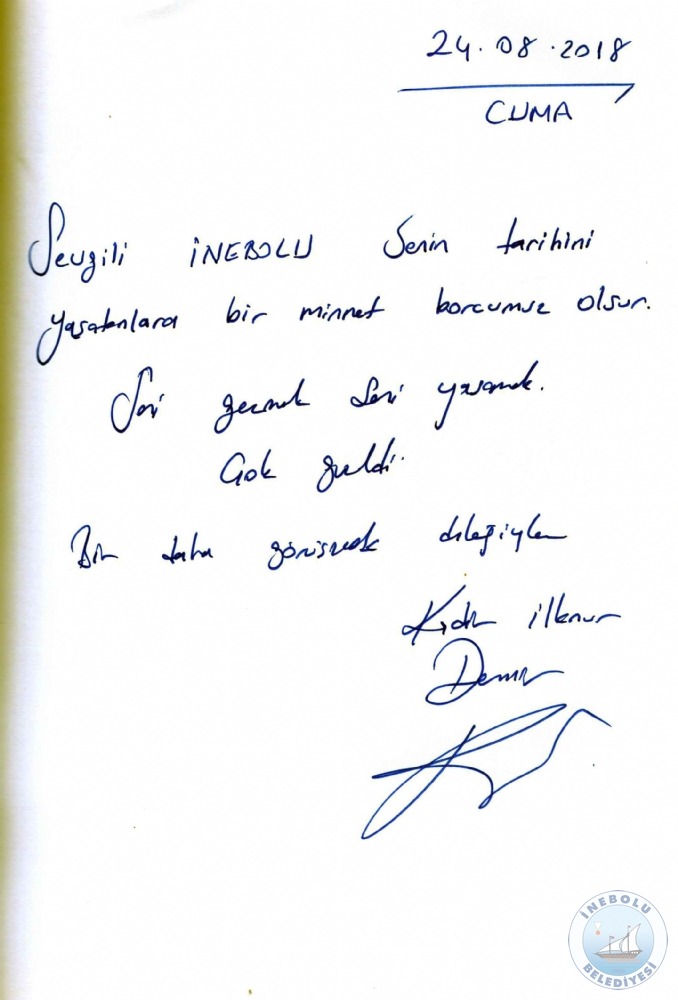 24.08.2018
CUMA
Sevgili İNEBOLU Senin tarihini
yaşatanlara bir minnet borcumuz olsun.
Seni gezmek Seni yaşamak.
Çok güzeldi.
Bir daha görüşmek dileğiyle
Kadir İlknur
Demir
İNEBOLU
BELEDİYESİ